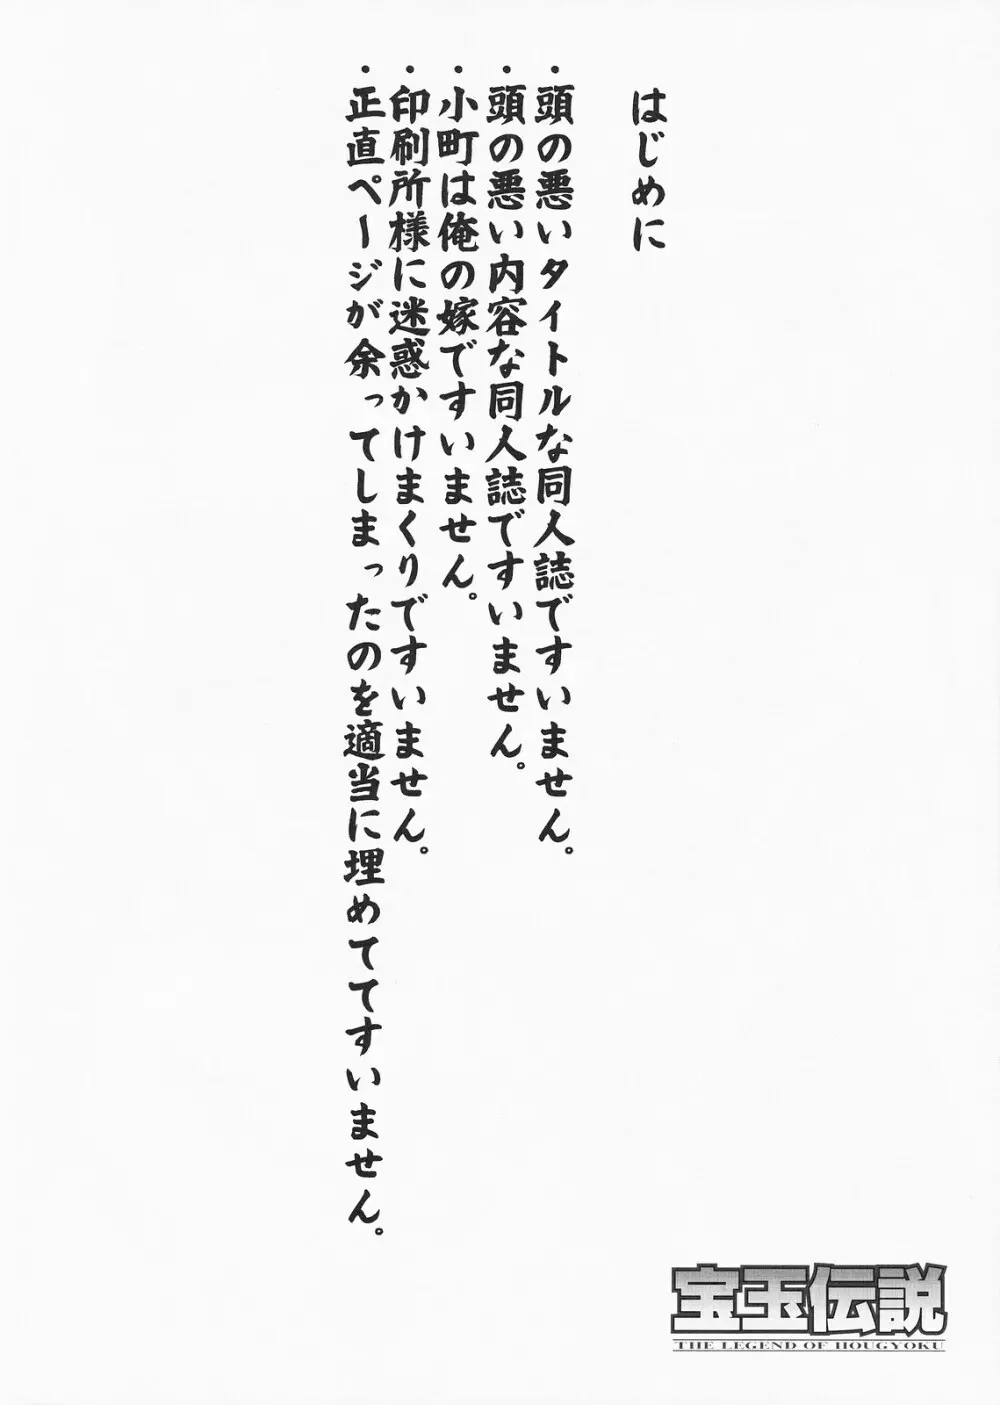 はじめに
・頭の悪いタイトルな同人誌ですいません。
・頭の悪い内容な同人誌ですいません。
・小町は俺の嫁ですいません。
・印刷所様に迷惑かけまくりですいません。
・正直ページが余ってしまったのを適当に埋めててすいません。
宝玉伝説
THE LEGEND OF HOUGYOKU